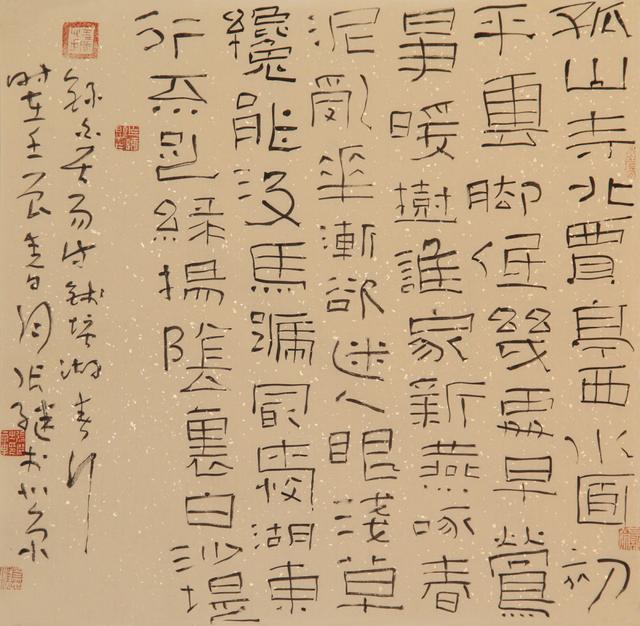 孤山寺北賈亭西水面初
平雲脚低幾處早鶯
爭暖樹誰家新燕啄春
泥亂花漸欲迷人眼淺草
纔能没馬蹄最愛湖東
行不足綠楊陰裏白沙堤
錄白居易詩錢塘湖春行
時在壬辰日張繼於北京